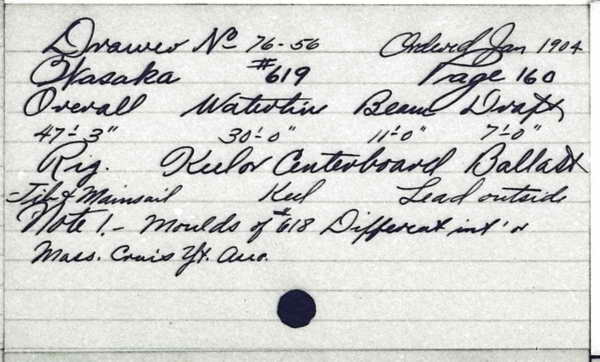 Drawer No 76-56 Ordered Jan 1904
Wasaka #619 Page 160
Overall Waterline Beam Draft
47'-3" 30'-0" 11'-0" 7'-0"
Rig. Keel or Centerboard Ballast
Jib & Mainsail Keel Lead outside
Note 1.- Moulds of #618 Different int'r
Mass. Cruis Yt. Asso.